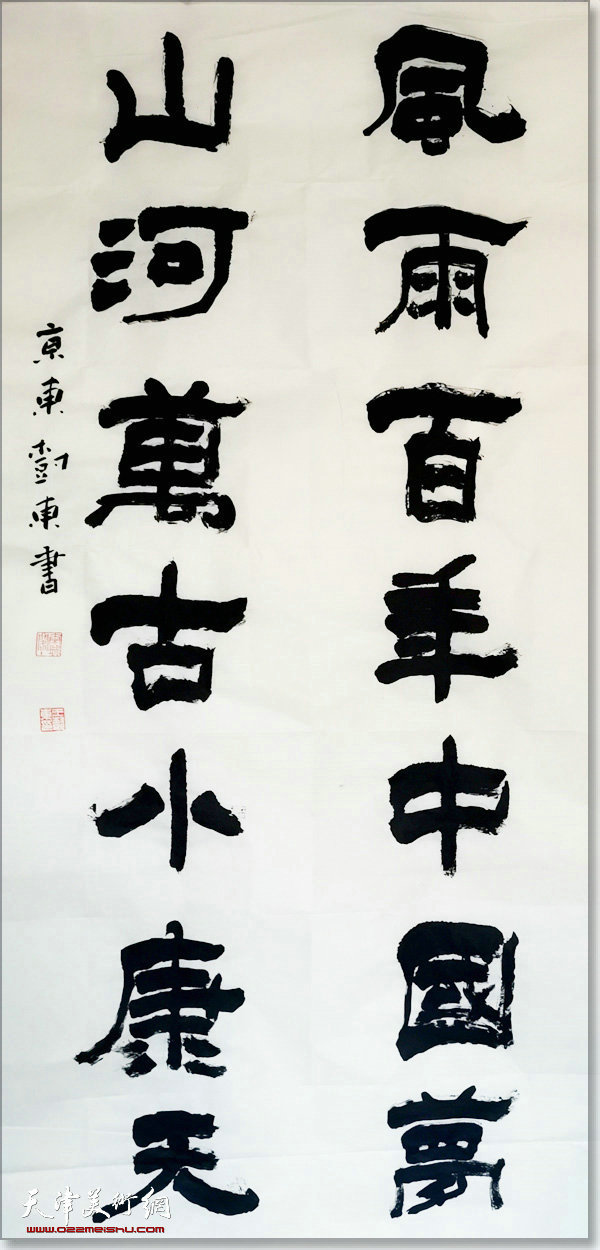 風雨百年中國夢
山河萬古小康天
京東劉東書
天津美術網
www.022meishu.com